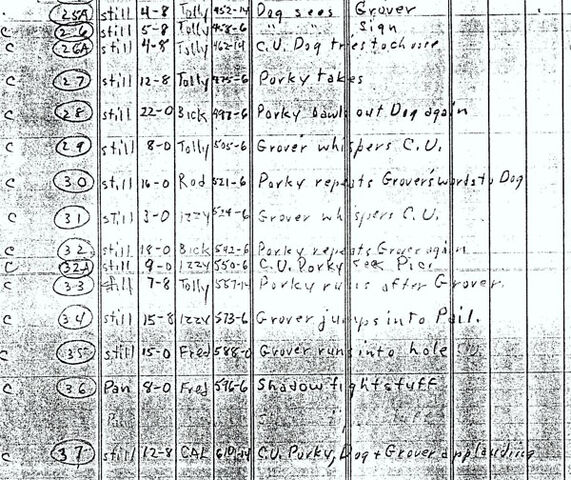 25A still 4-8 Tolly 452-14 Dog sees Grover
c 26 still 5-8 Tolly 458-6 " " sign
c 26A still 4-8 Tolly 462-14 C.U. Dog tries to chase
c 27 still 12-8 Tolly 475-6 Porky takes
c 28 still 22-0 Bick 497-6 Porky bawls out Dog again
c 29 still 8-0 Tolly 505-6 Grover whispers C.U.
c 30 still 16-0 Rod 521-6 Porky repeats Grover's words to Dog
c 31 still 3-0 Izzy 524-6 Grover whispers C.U.
c 32 still 18-0 Bick 542-6 Porky repeats Grover again
c 32A still 9-0 Izzy C.U. Porky see Pic.
c 33 still 7-8 Tolly Porky runs after Grover.
c 34 still 15-8 Izzy 573-6 Grover jumps into Pail.
c 35 still 15-0 Fred 588-6 Grover runs into hole
c 36 Pan 8-0 Fred 596-6 Shadow fight stuff
c 37 still 12-8 CAL C.U. Porky, Dog + Grover applauding